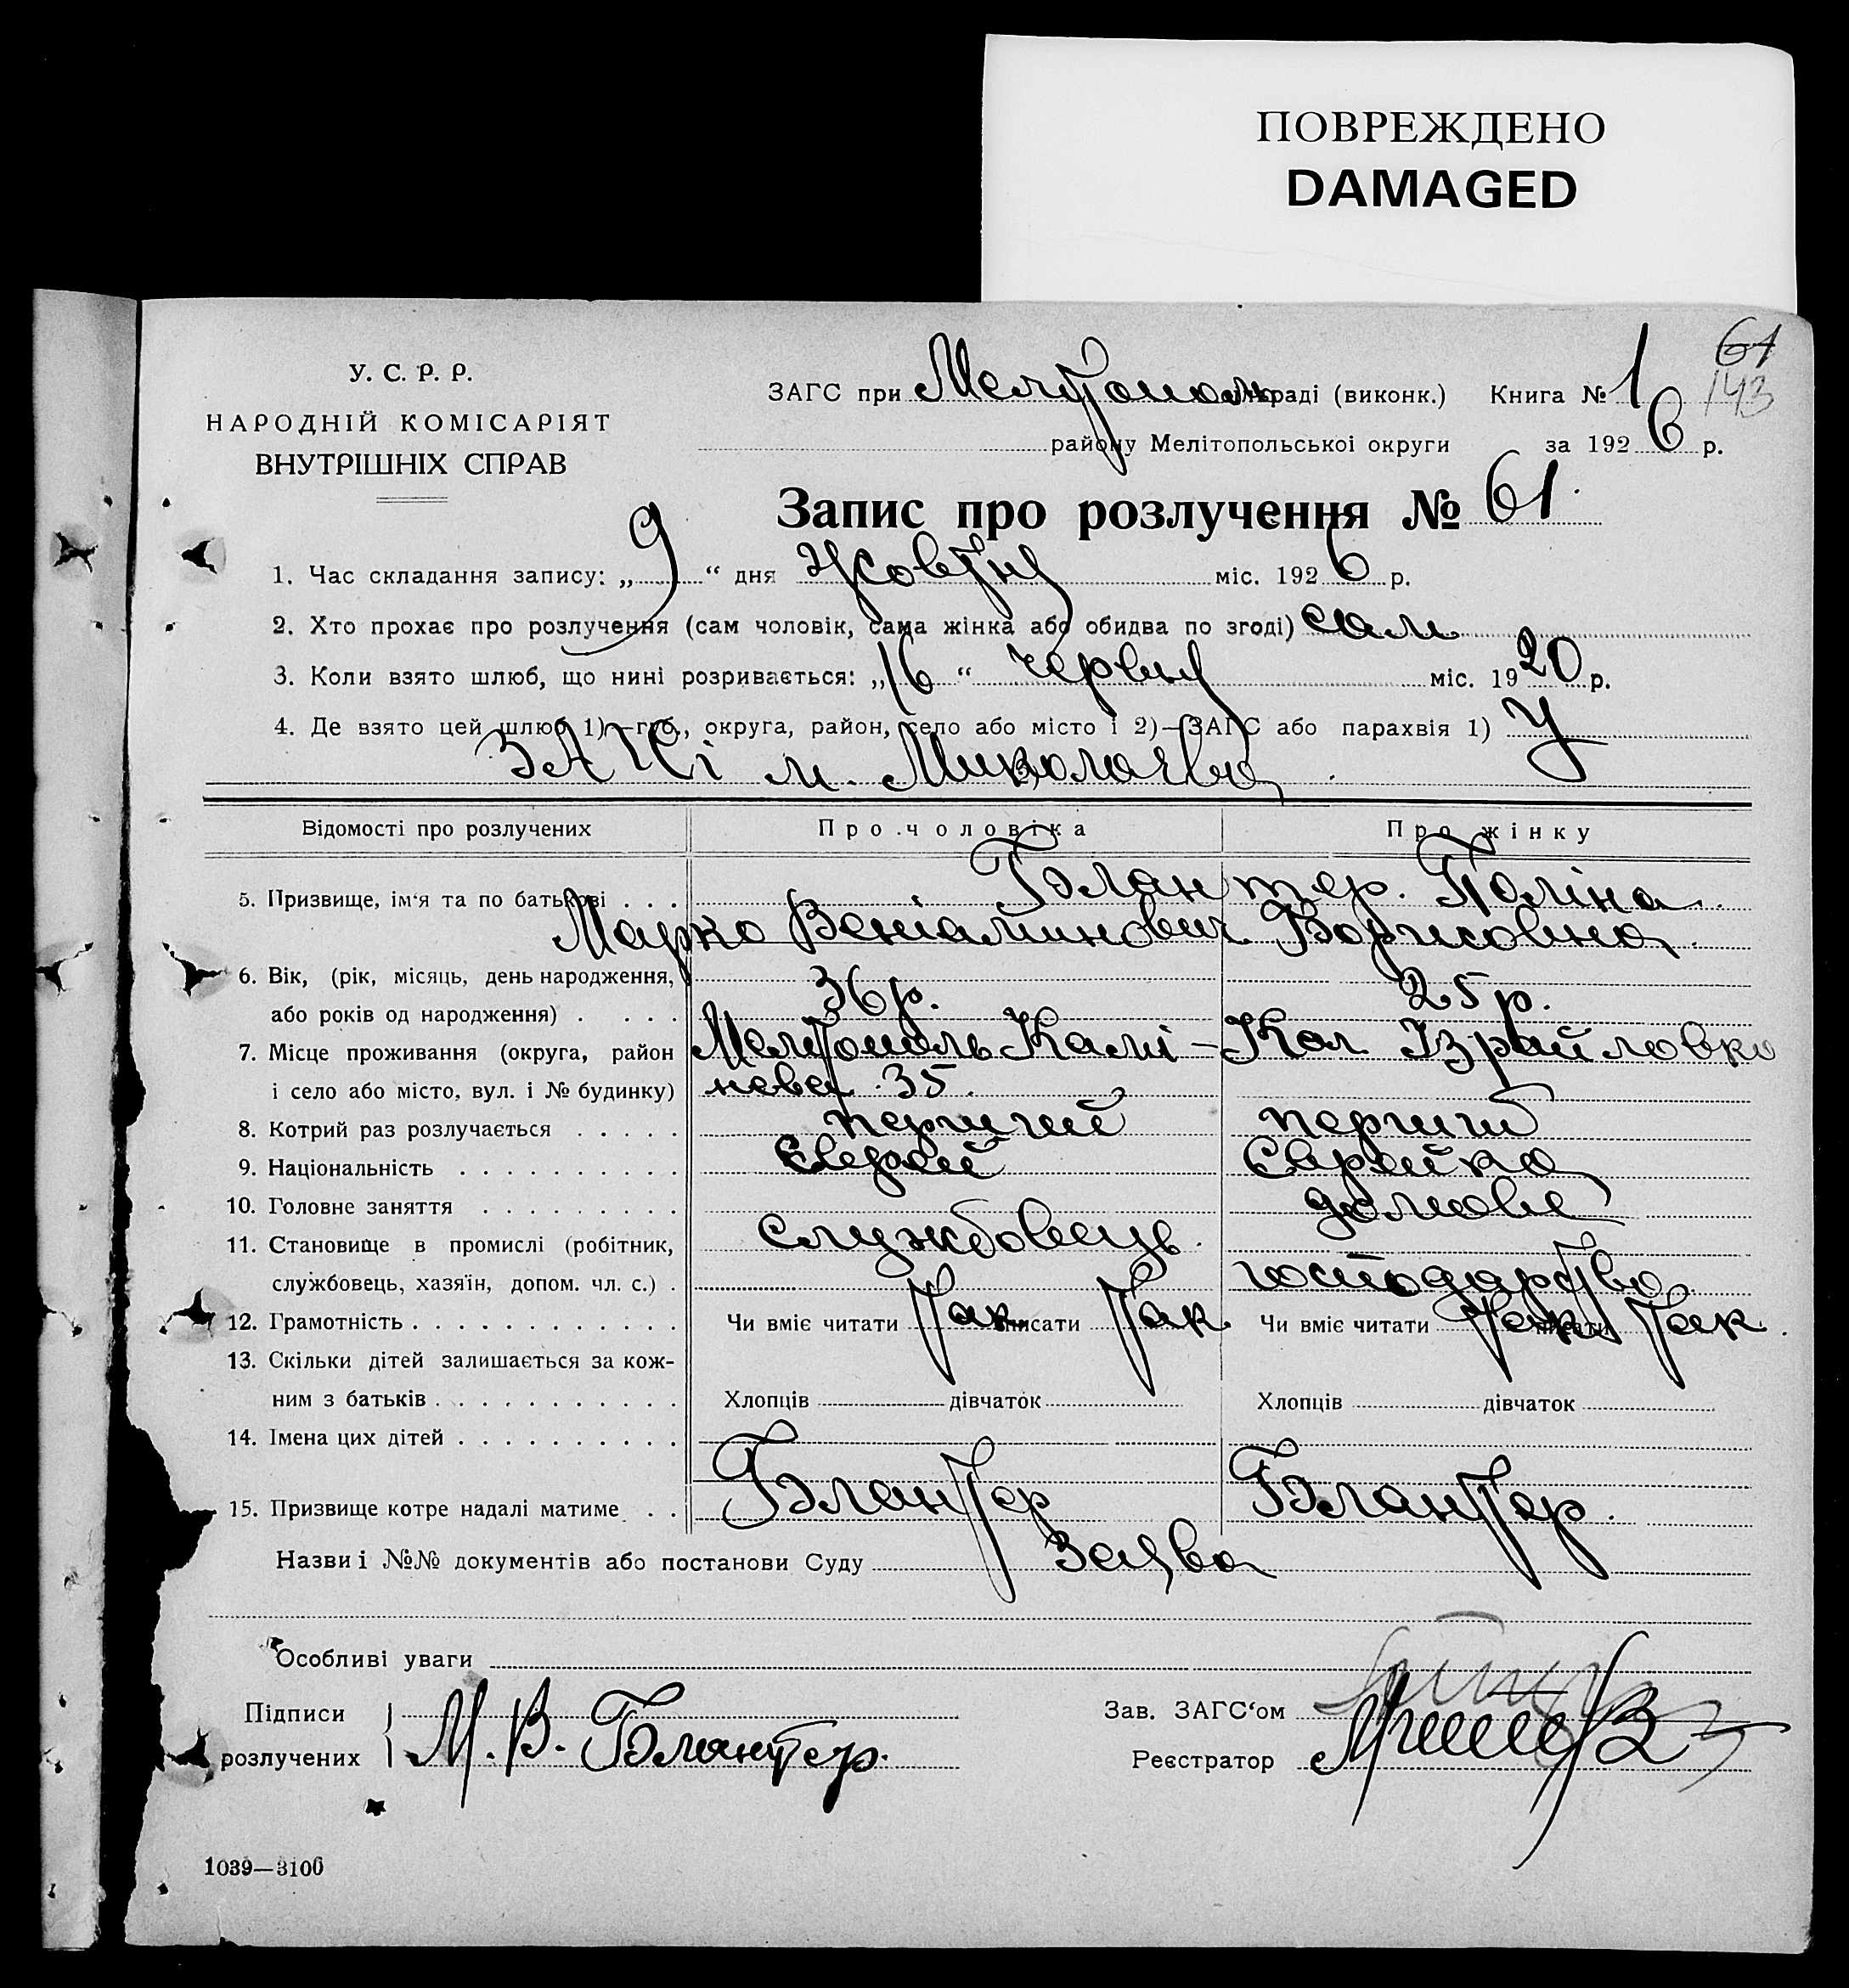 ПОВРЕЖДЕНО
DAMAGED
61
143
У. С. Р. Р.
НАРОДНІЙ КОМІСАРІЯТ
ВНУТРІШНІХ СПРАВ
ЗАГС при Мелітополь міськраді (виконк.) Книга № 1
району Мелітопольської округи за 1926 р.
Запис про розлучення № 61.
1. Час складання запису: „9“ дня Жовтня міс. 1926 р.
2. Хто прохає про розлучення (сам чоловік, сама жінка або обидва по згоді) сам
3. Коли взято шлюб, що нині розривається: „16“ червня міс. 1920 р.
4. Де взято цей шлюб 1)—губ., округа, район, село або місто і 2)—ЗАГС або парахвія 1) У
ЗАГСі м. Миколаєва.
Відомості про розлучених Про чоловіка Про жінку
5. Призвище, ім'я та по батькові . . . Блантер. Поліна
Марко Веніаминович Борисовна.
6. Вік, (рік, місяць, день народження, 36 р. 25 р.
або років од народження) . . . .
7. Місце проживання (округа, район Мелітополь Камі- Кол. Ізрайловка
і село або місто, вул. і № будинку) нева 35.
8. Котрий раз розлучається . . . . . перший перший
9. Національність . . . . . . . . . . Єврей Єврейка
10. Головне заняття . . . . . . . . . домове
11. Становище в промислі (робітник, службовець.
службовець, хазяїн, допом. чл. с.) . господарство.
12. Грамотність . . . . . . . . . . . . Чи вміє читати так писати так. Чи вміє читати так писати так.
13. Скільки дітей залишається за кож-
ним з батьків . . . . . . . . . . . Хлопців дівчаток Хлопців дівчаток
14. Імена цих дітей . . . . . . . . . .
15. Призвище котре надалі матиме . . Блантер Блантер.
Назви і №№ документів або постанови Суду Заява
Особливі уваги
Підписи
розлучених М. В. Блантер.
Зав. ЗАГС'ом
Реєстратор
1039—3100